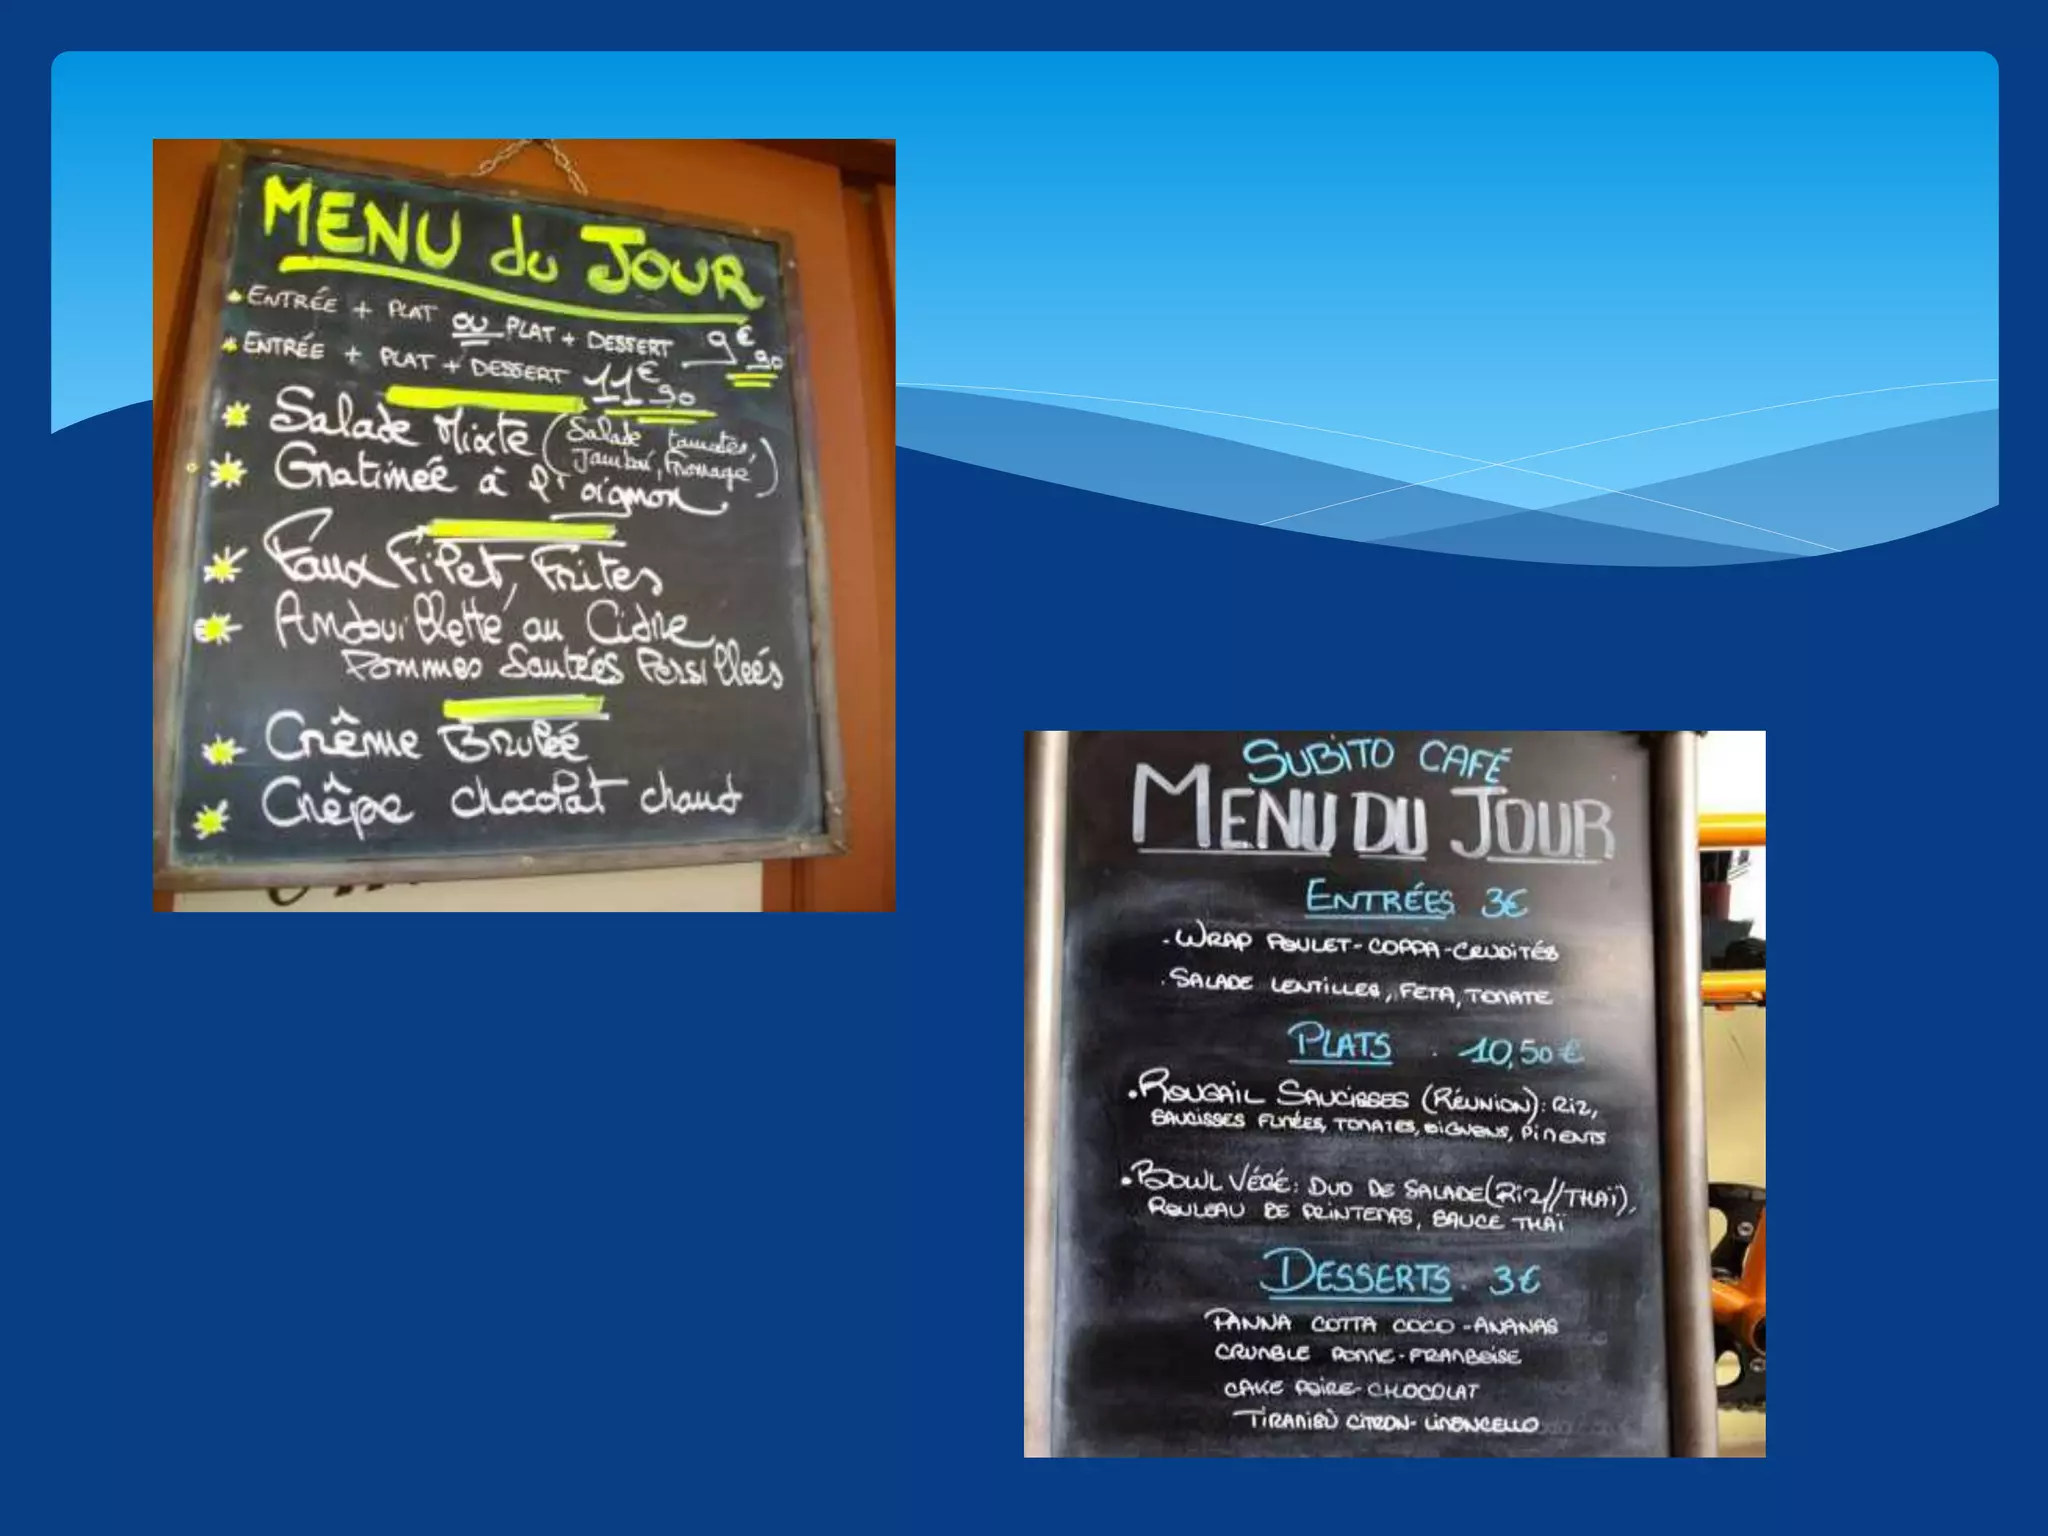 MENU du JOUR
ENTRÉE + PLAT OU PLAT + DESSERT 9€90
ENTRÉE + PLAT + DESSERT 11€90
Salade Mixte (Salade, tomates,
Jambon, Fromage)
Gratinée à l'oignon
Faux Filet, Frites
Andouillette au Cidre
Pommes Sautées Persillées
Crême Brulée
Crêpe chocolat chaud
SUBITO CAFÉ
MENU DU JOUR
ENTRÉES 3€
. WRAP POULET-COPPA-CRUDITÉS
. SALADE LENTILLES, FETA, TOMATE
PLATS . 10,50€
. ROUGAIL SAUCISSES (RÉUNION): RIZ,
SAUCISSES FUMÉES, TOMATES, OIGNONS, PIMENTS
. BOWL VÉGÉ: DUO DE SALADE(RIZ//THAÏ),
ROULEAU DE PRINTEMPS, SAUCE THAÏ
DESSERTS . 3€
PANNA COTTA COCO-ANANAS
CRUMBLE POMME-FRAMBOISE
CAKE POIRE-CHOCOLAT
TIRAMISÙ CITRON-LIMONCELLO